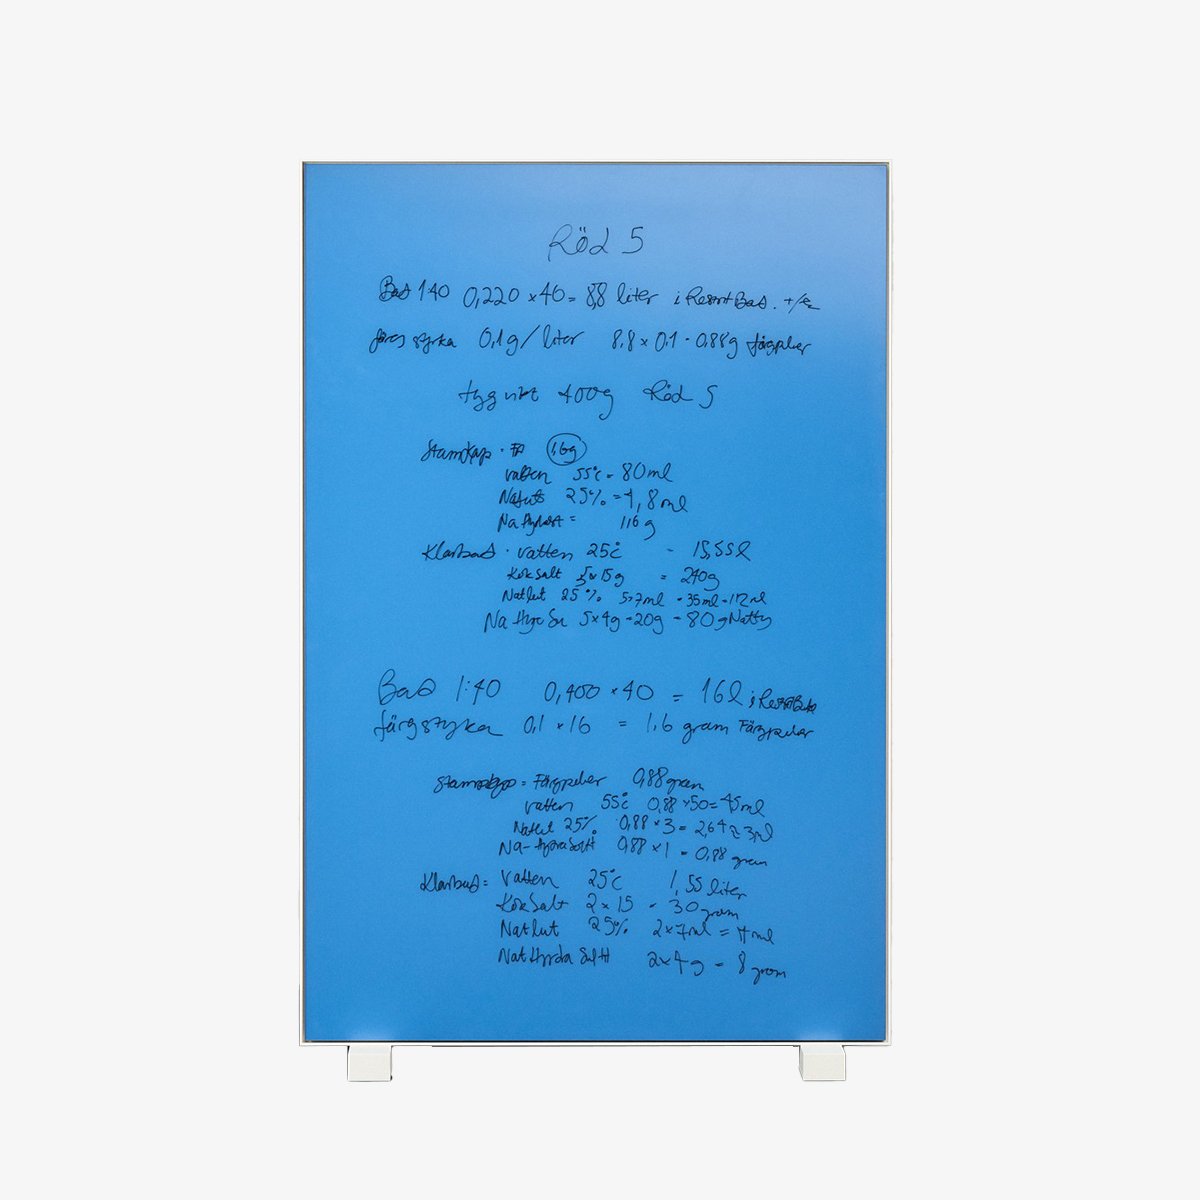 Röd 5
Bad 1:40 0,220 × 40 = 8,8 liter i ResortBad. +/-
färgstyrka 0,1g/liter 8.8 × 0,1 - 0,88g färgpulver
tygvikt 400g Röd 5
Stamkyp · FP 1,6g
vatten 55°c - 80ml
Natlut 25% = 4,8ml
Na Hydrosit = 1,6 g
Klarbad · vatten 25°c - 15,55l
Koksalt 5 × 15g = 240g
Natlut 25% 5×7ml - 35ml - 112ml
Na 5×4g - 20g - 80g
Bad 1:40 0,400 × 40 = 16l i
färgstyrka 0,1 × 16 = 1,6 gram Färgpulver
Stamkyp = Färgpulver 0,88 gram
vatten 55°c 0,88 × 50 = 45ml
Natlut 25% 0,88 × 3 = 2,64 ≈ 3ml
Na- 0,88 × 1 - 0,88 gram
Klarbad = Vatten 25°c 1,55 liter
Koksalt 2 × 15 - 30 gram
Natlut 25% 2×7ml = 14ml
Nat 2×4g - 8 gram